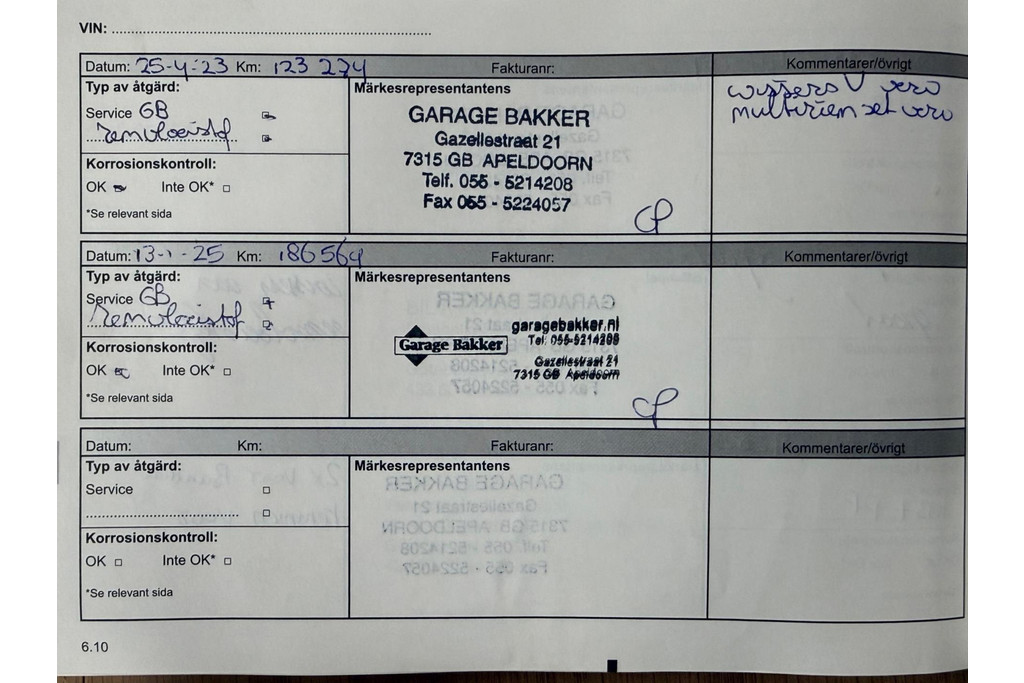 VIN: ........................................................................
Datum: 25-4-23 Km: 123 274 Fakturanr: Kommentarer/övrigt
Typ av åtgärd: Märkesrepresentantens
Service GB
remvloeistof
wissers V verv
multiriem set verv
GARAGE BAKKER
Gazellestraat 21
7315 GB APELDOORN
Telf. 055 - 5214208
Fax 055 - 5224057
Korrosionskontroll:
OK Inte OK*
*Se relevant sida
Datum: 13-1-25 Km: 186564 Fakturanr: Kommentarer/övrigt
Typ av åtgärd: Märkesrepresentantens
Service GB
remvloeistof
Garage Bakker
garagebakker.nl
Tel: 055-5214208
Gazellestraat 21
7315 GB Apeldoorn
Korrosionskontroll:
OK Inte OK*
*Se relevant sida
Datum: Km: Fakturanr: Kommentarer/övrigt
Typ av åtgärd: Märkesrepresentantens
Service
Korrosionskontroll:
OK Inte OK*
*Se relevant sida
6.10